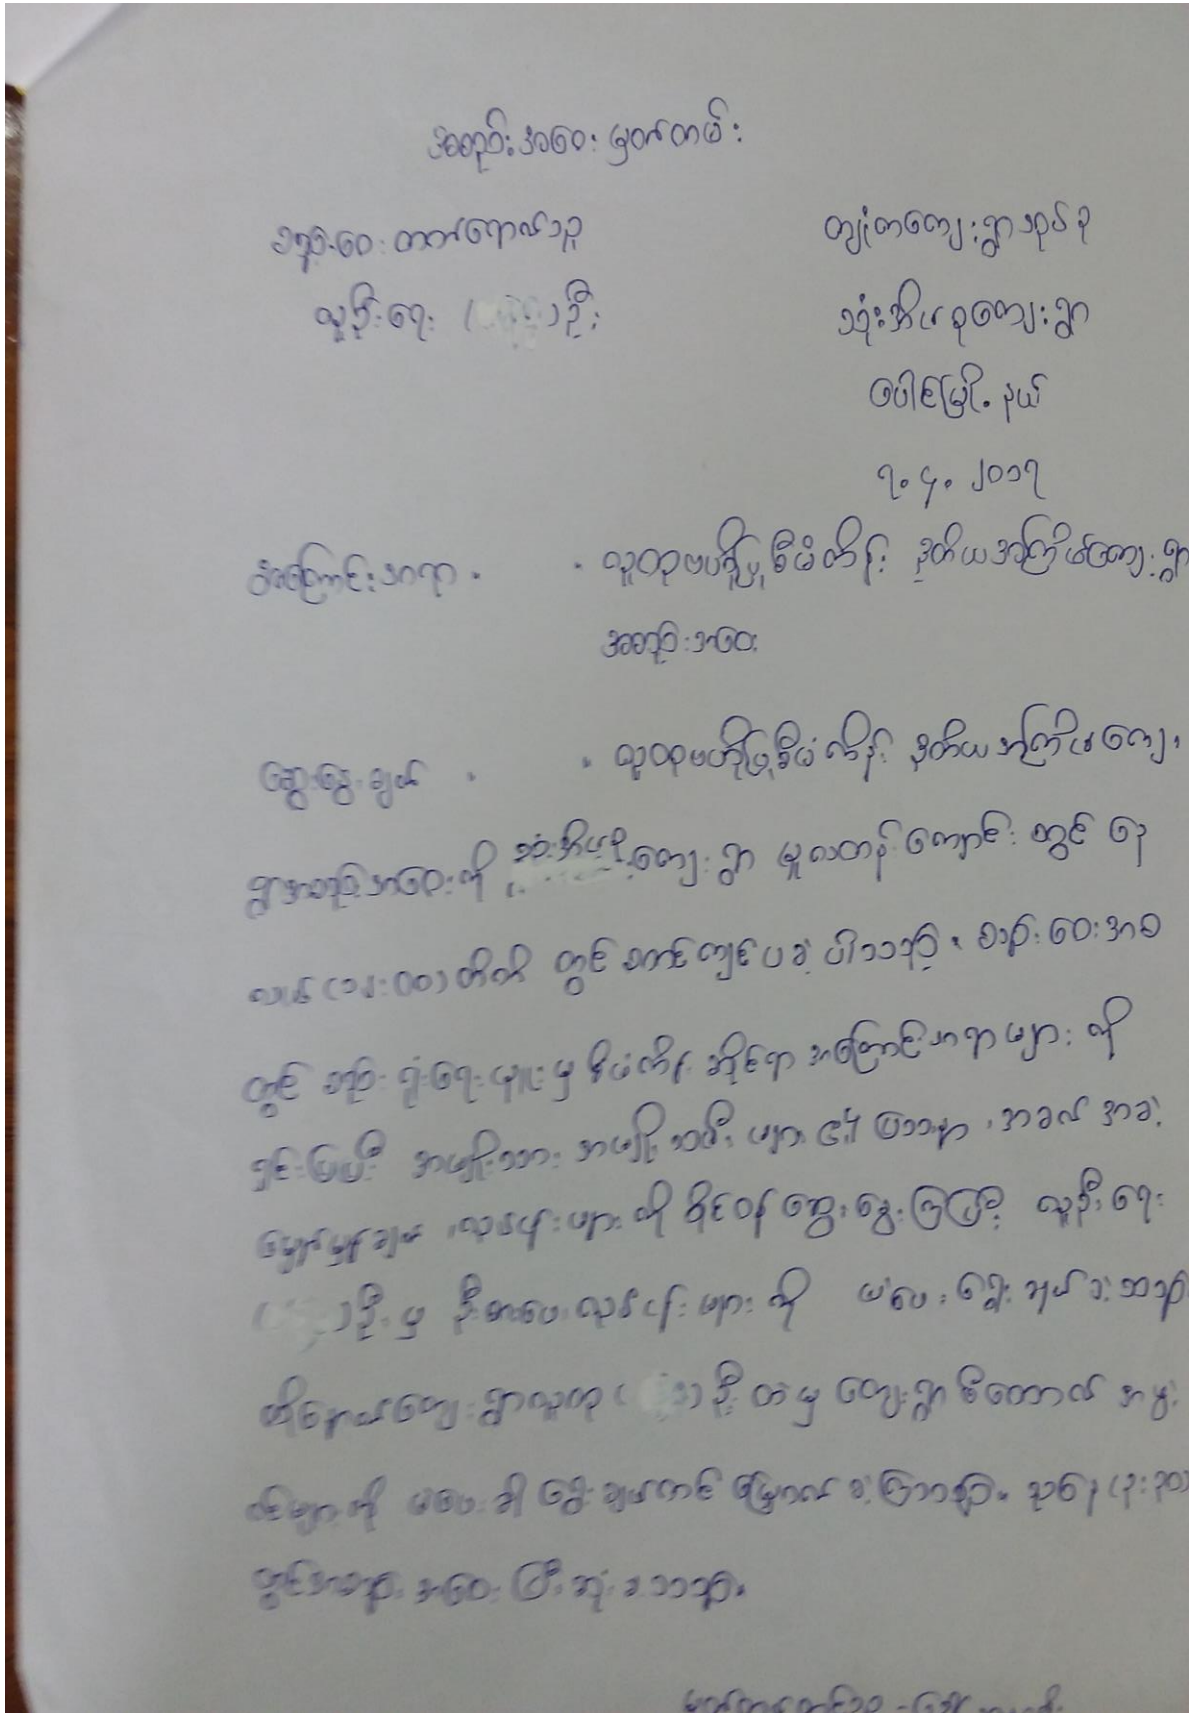 အစည်းအဝေး မှတ်တမ်း
အစည်းအဝေး တက်ရောက်သူ ကျုံကကျေးရွာအုပ်စု
လူဦးရေ ( ) ဦး သုံးအိမ်စုကျေးရွာ
ပေါင်မြို့နယ်
၇.၄.၂၀၁၇
အကြောင်းအရာ . . လူထုဗဟိုပြုစီမံကိန်း ဒုတိယအကြိမ်ကျေးရွာ
အစည်းအဝေး
ဆွေးနွေးချက် . . လူထုဗဟိုပြုစီမံကိန်း ဒုတိယအကြိမ်ကျေး
ရွာအစည်းအဝေးကို သုံးအိမ်စုကျေးရွာ မူလတန်းကျောင်းတွင် နေ့
လယ် (၁၂:၀၀) တိတိ တွင် စတင်ကျင်းပခဲ့ ပါသည်။ အစည်းအဝေးအစ
တွင် စီမံကိန်း ဆိုင်ရာ အကြောင်းအရာများ ကို
ရှင်းပြပြီး အမျိုးသား အမျိုးသမီး များ၏ ပြဿနာ ၊ အခက် အခဲ
မျှော်မှန်းချက် ၊ လုပ်ငန်းများ ကို ဝိုင်းဝန်း ဆွေးနွေးကြပြီး လူဦးရေ
( ) ဦး မှ ဦးစားပေးလုပ်ငန်း များ ကို မဲပေး ရွေးချယ်ခဲ့သည်
ထို့နောက်ကျေးရွာလူထု ( ) ဦး ထဲမှ ကျေးရွာ စီ အဖွဲ့
ဝင်များကို မဲပေး၍ ရွေးချယ်တင်မြှောက် ခဲ့ကြသည်။ ညနေ (၃:၃၀)
တွင်အစည်း အဝေး ပြီးဆုံး ခဲ့သည်။